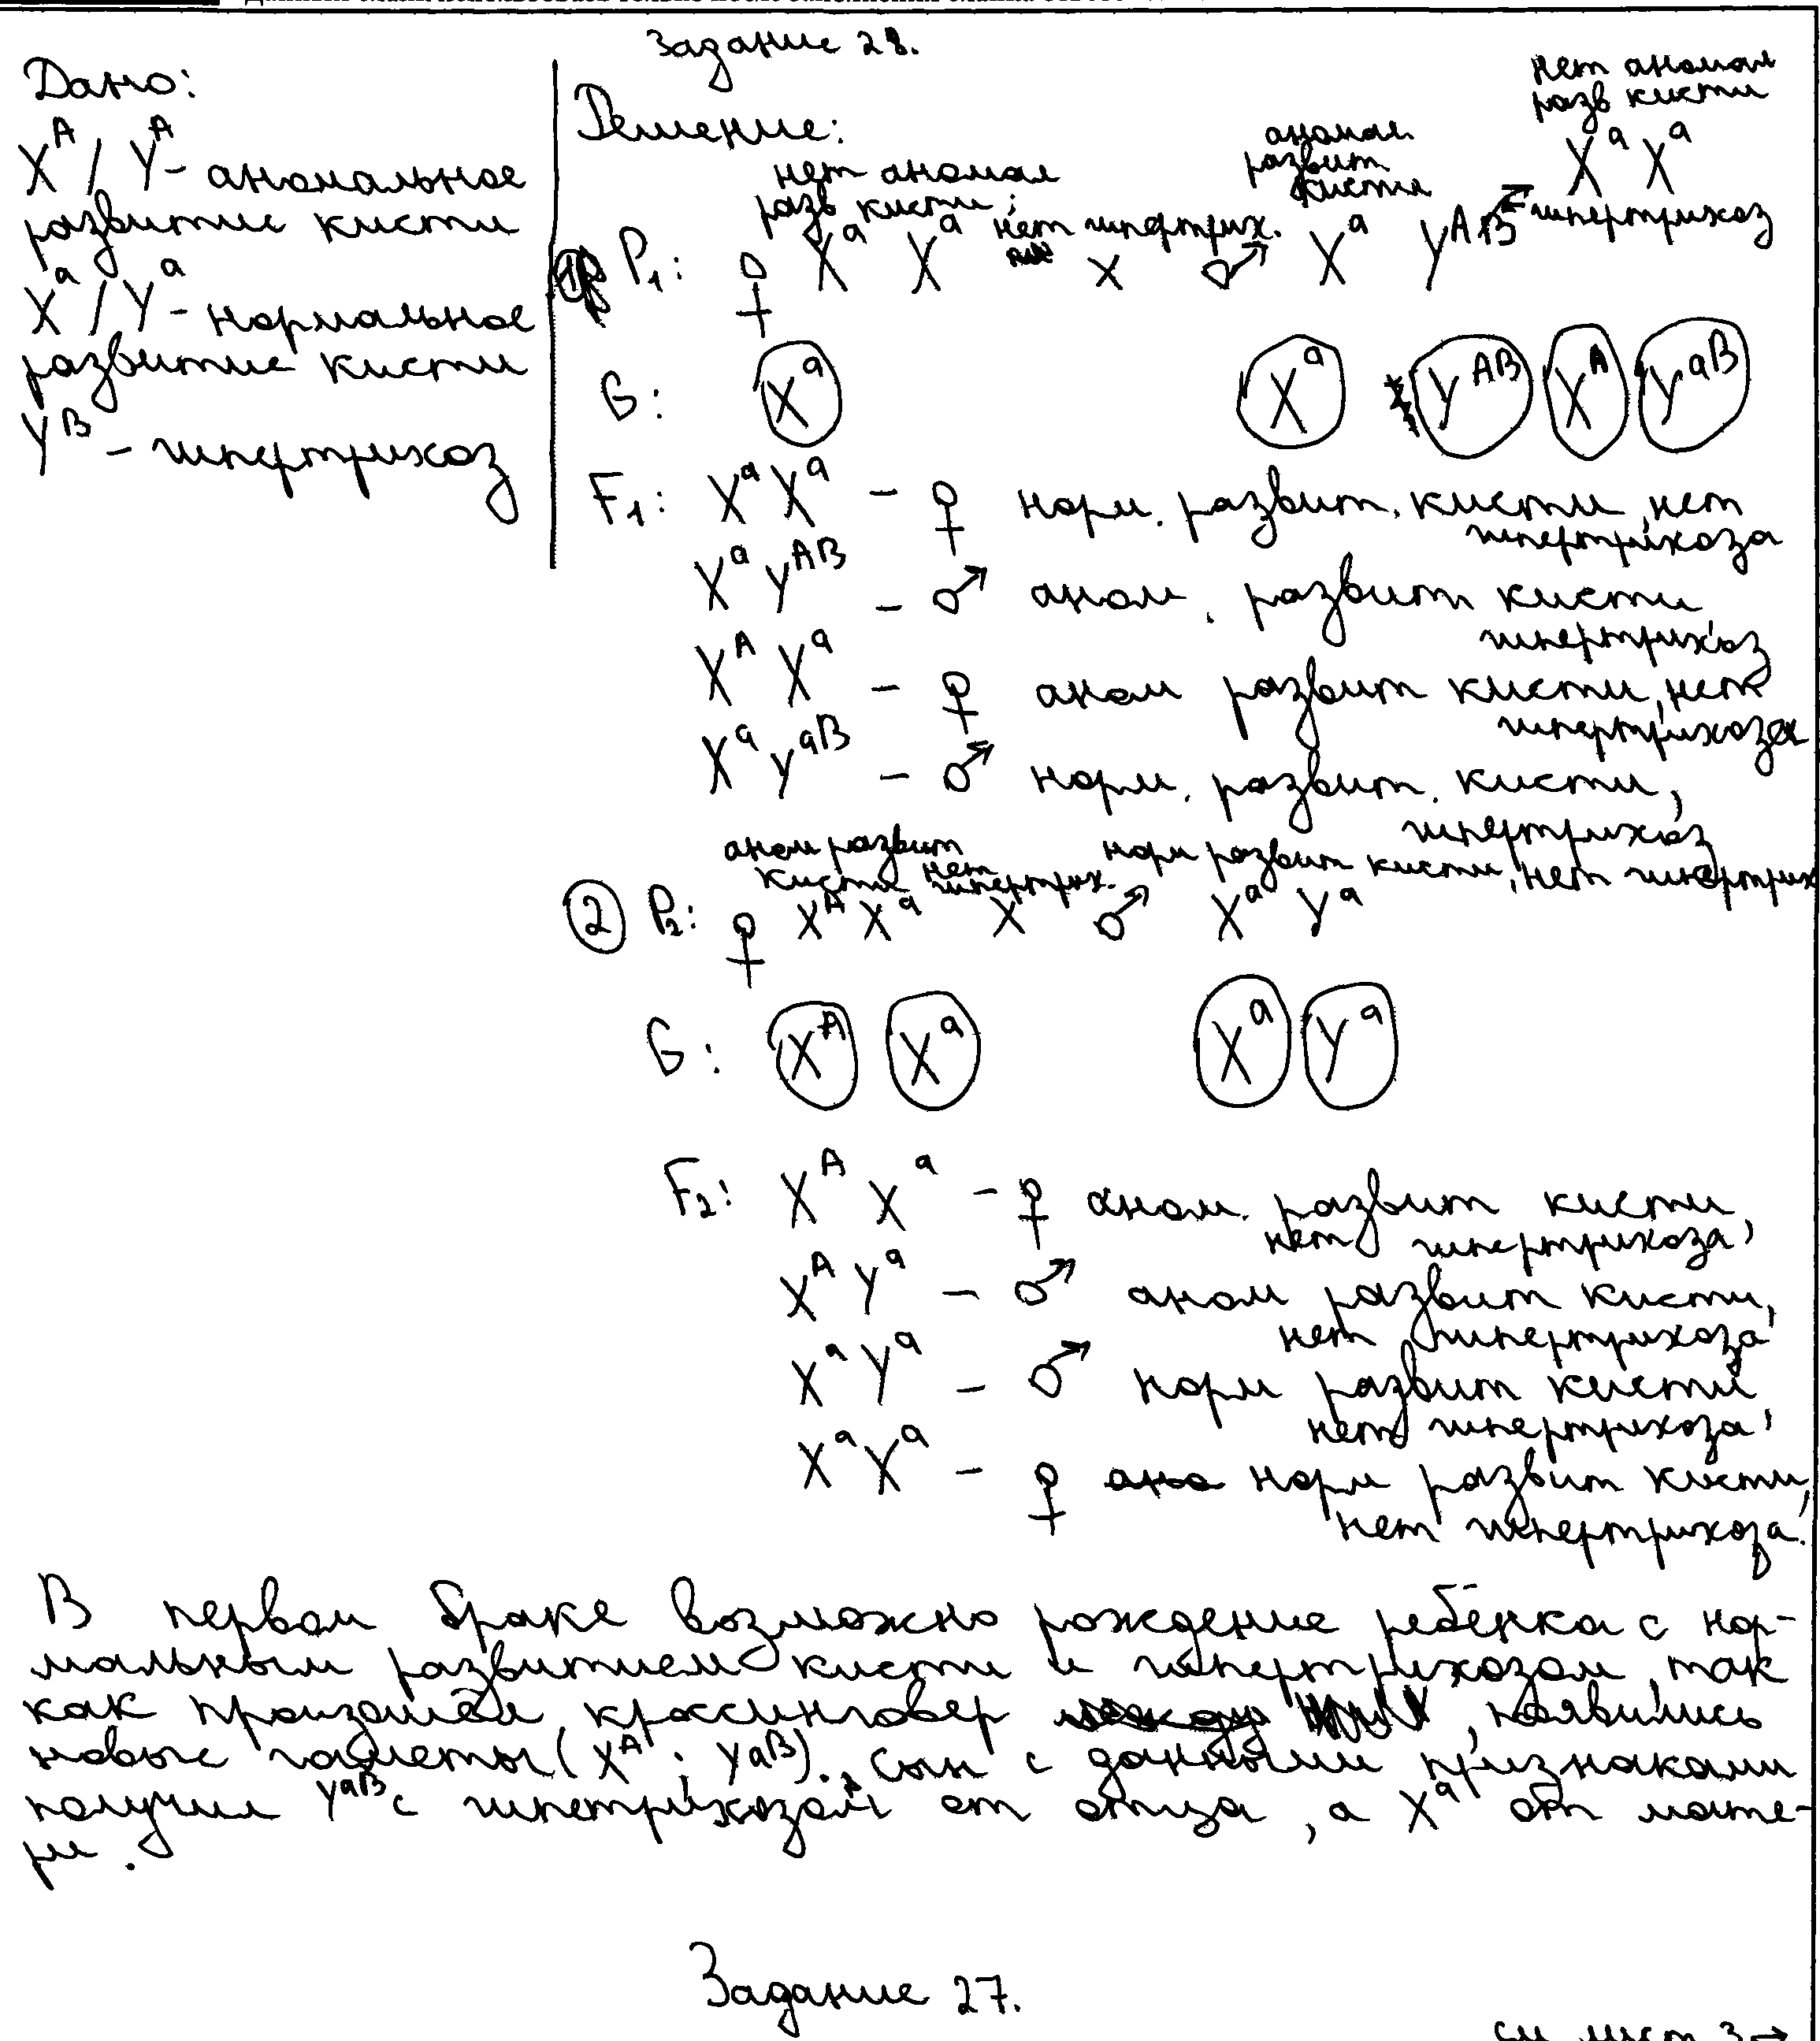 Задание 28.
Дано:
X^A / Y^A - аномальное
развитие кисти
X^a / Y^a - нормальное
развитие кисти
Y^B - гипертрихоз
Решение:
нет аномал
разв кисти;
нет гипертрих.
аномал.
развит
кисти
гипертрихоз
нет аномал
разв кисти
X^a X^a
P₁: ♀ X^a X^a x ♂ X^a Y^AB
G: X^a X^a Y^AB X^A Y^aB
F₁: X^a X^a - ♀ норм. развит. кисти, нет
гипертрихоза
X^a Y^AB - ♂ аном. развит кисти
гипертрихоз
X^A X^a - ♀ аном развит кисти, нет
гипертрихоза
X^a Y^aB - ♂ норм. развит. кисти,
гипертрихоз
аном развит
кисти нет гипертрих.
норм развит кисти, нет гипертрих
② P₂: ♀ X^A X^a x ♂ X^a Y^a
G: X^A X^a X^a Y^a
F₂: X^A X^a - ♀ аном. развит кисти,
нет гипертрихоза,
X^A Y^a - ♂ аном развит кисти,
нет гипертрихоза
X^a Y^a - ♂ норм развит кисти
нет гипертрихоза,
X^a X^a - ♀ норм развит кисти,
нет гипертрихоза.
В первом браке возможно рождение ребёнка с нор-
мальным развитием кисти и гипертрихозом, так
как произошёл кроссинговер, появились
новые гаметы (X^A; Y^aB). Сын с данными признаками
получил Y^aB с гипетрихозом от отца, а X^a от мате-
ри.
Задание 27.
см. лист 3→